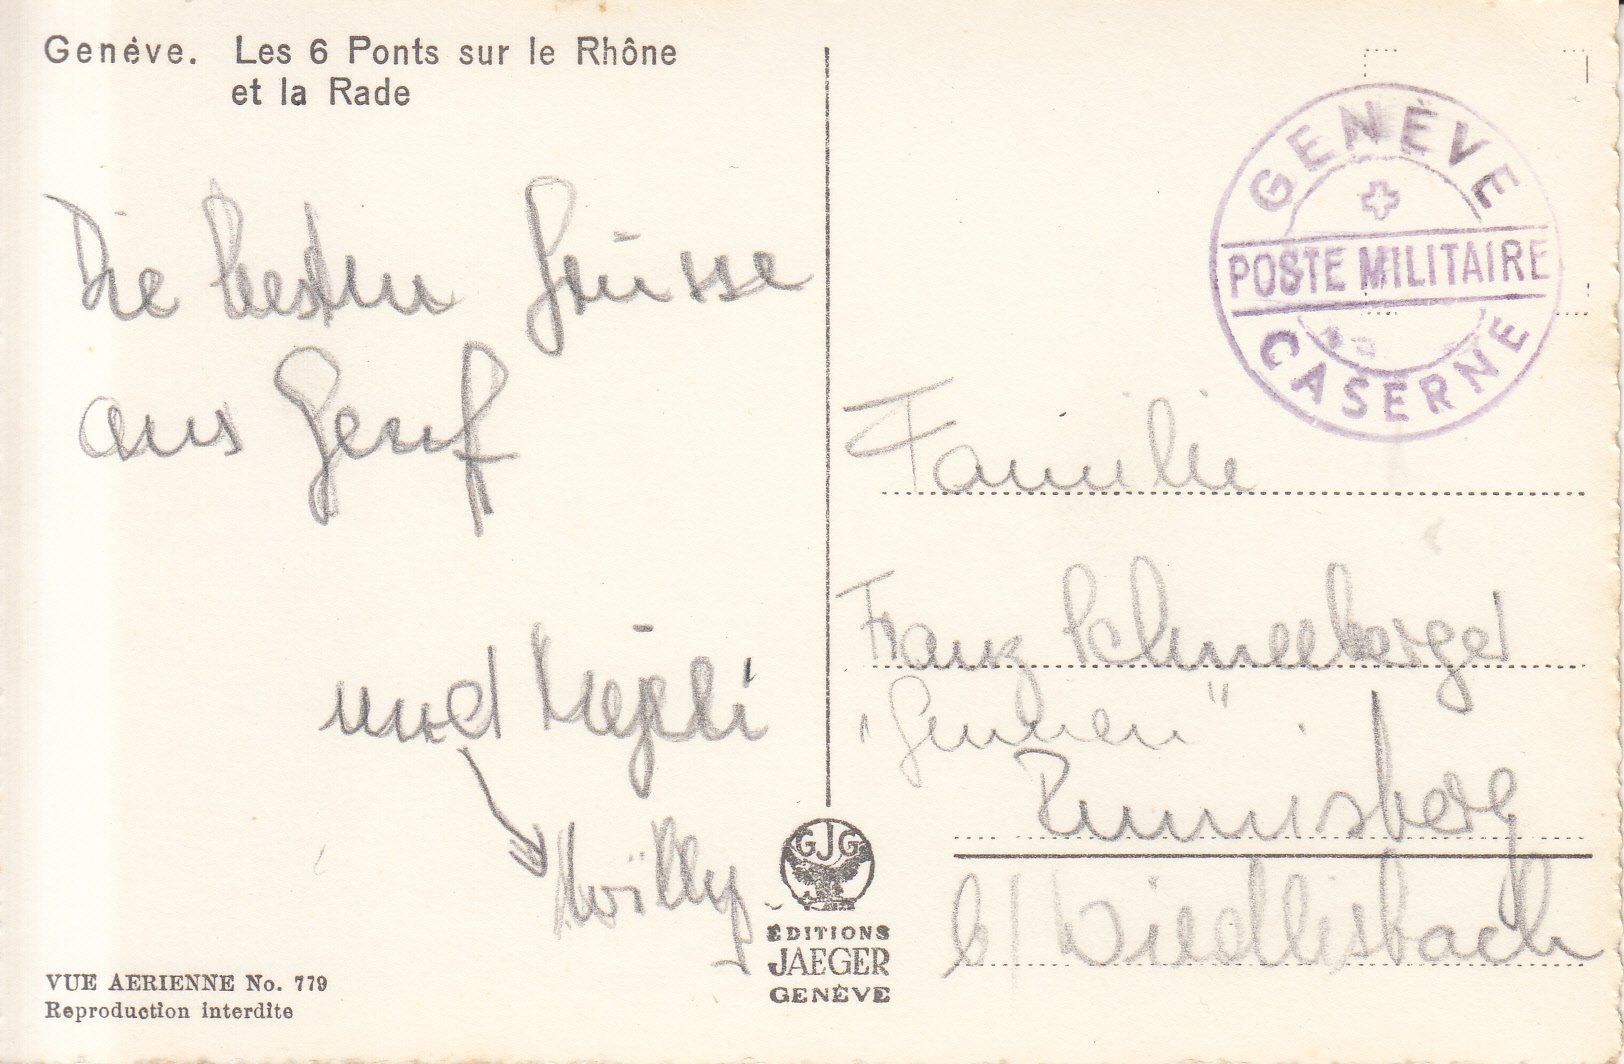 Genève. Les 6 Ponts sur le Rhône
et la Rade
Die besten Grüsse
aus Genf
und
Willy
VUE AERIENNE No. 779
Reproduction interdite
GJG
ÉDITIONS
JAEGER
GENÈVE
GENÈVE
POSTE MILITAIRE
CASERNE
Familie
Franz Schneeberger
Rumisberg
b/ Wiedlisbach